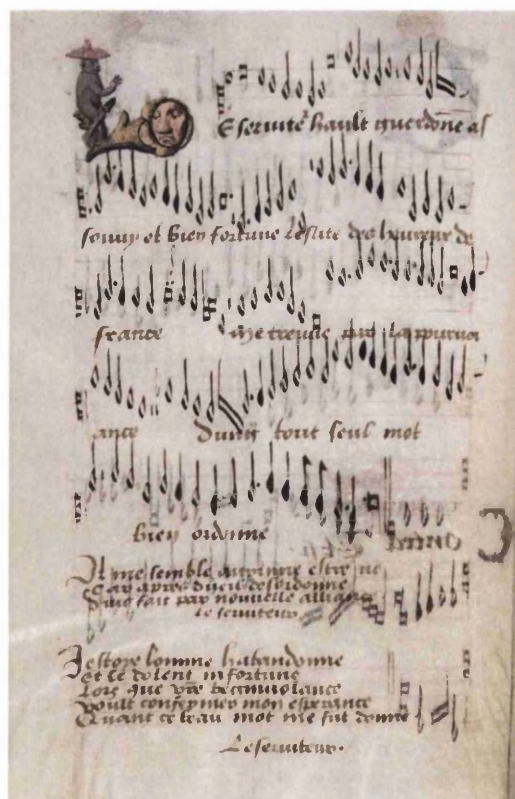 E servite᷑ hault guerdoñe as
souvy et bien fortune leslite des heureux de
france Me treuve par la pourvoi
ance Dung tout seul mot
bien ordonne
Il me semble estre ne
Car apres dueil desordonne
Suis fait par nouvelle allian
Le serviteur
Jestoye lomme habandonne
Et le dolent infortune
Lors que vr̃e benivolance
Voult confermer mon esperance
Quant ce beau mot me fut donne
Le serviteur.